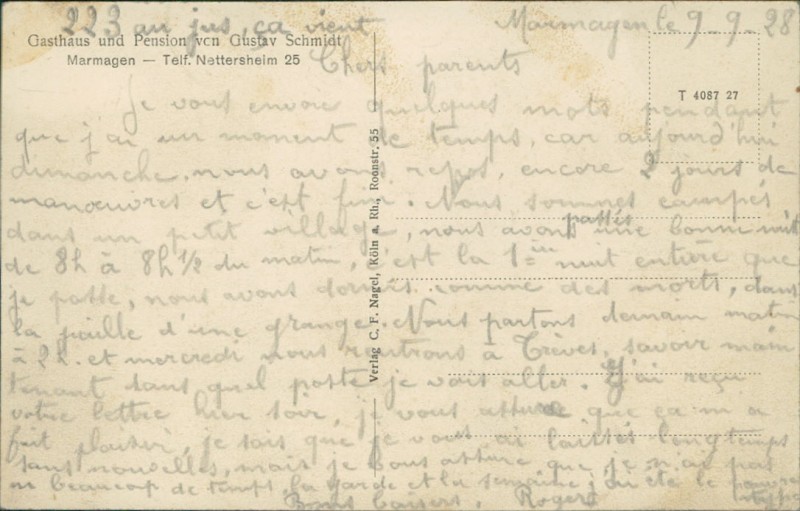 223 au jus, ça vient
Marmagen le 9-9-28
Gasthaus und Pension von Gustav Schmidt
Marmagen — Telf. Nettersheim 25
T 4087 27
Verlag C. F. Nagel, Köln a. Rh., Roonstr. 55
Chers parents
Je vous envoie quelques mots pendant
que j'ai un moment de temps, car aujourd'hui
dimanche, nous avons repos, encore 2 jours de
manœuvres et c'est fini. Nous sommes campés
dans un petit village, nous avons passés une bonne nuit
de 8h à 8h 1/2 du matin, c'est la 1ière nuit entière que
je passe, nous avons dormis comme des morts, dans
la paille d'une grange. Nous partons demain matin
à 2h. et mercredi nous rentrons à Trèves, savoir main
tenant dans quel poste je vais aller. J'ai reçu
votre lettre hier soir, je vous assure que ça m'a
fait plaisir, je sais que je vous ai laissés longtemps
sans nouvelles, mais je vous assure que je n'ai pas
eu beaucoup de temps, la garde et la semaine j'ai été le pauvre
Bons baisers. Roger